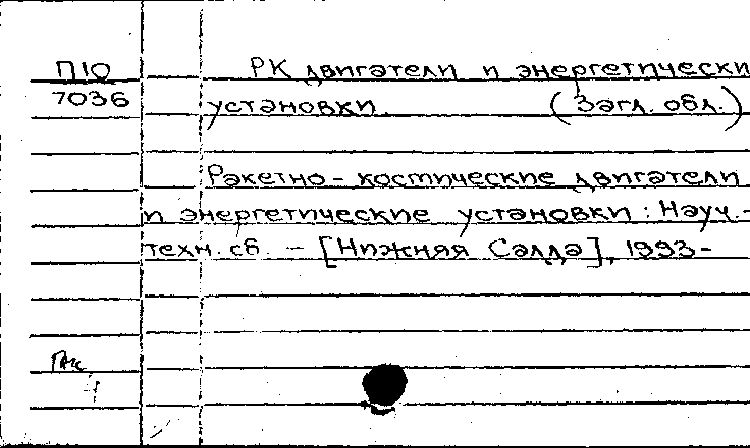 П10 РК двигатели и энергетически
7036 установки (Загл. обл.)
Ракетно-костические двигатели
и энергетические установки: Науч.-
техн. сб. – [Нижняя Салда], 1993-